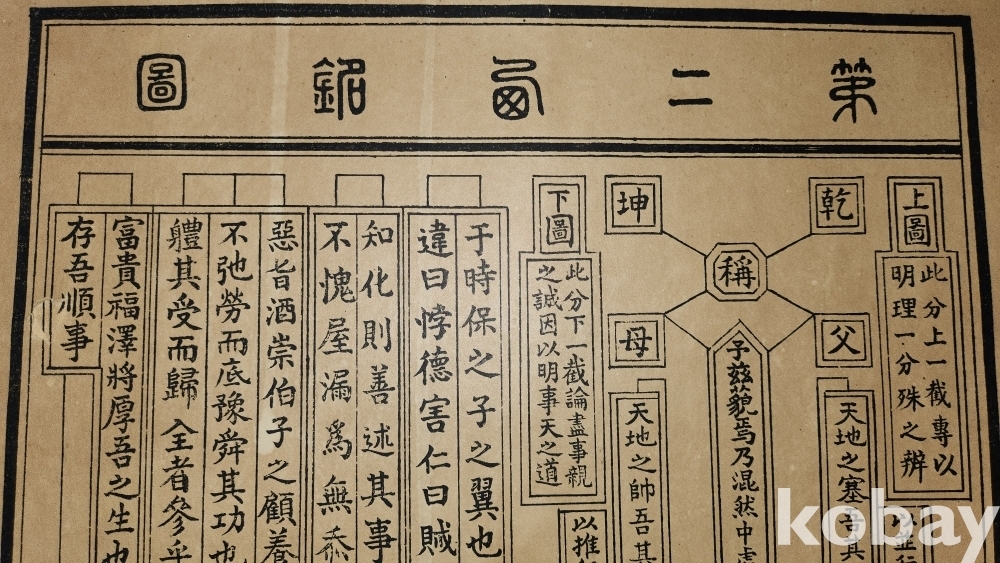 第二西銘圖
上圖
此分上一截專以
明理一分殊之辨
乾
父
天地之塞吾其
稱
子茲藐焉乃混然中處
坤
母
天地之帥吾其
下圖
此分下一截論盡事親
之誠因以明事天之道
以推
于時保之子之翼也
違曰悖德害仁曰賊
知化則善述其事
不愧屋漏爲無忝
惡旨酒崇伯子之顧養
不弛勞而底豫舜其功也
體其受而歸全者參乎
富貴福澤將厚吾之生也
存吾順事
kobay